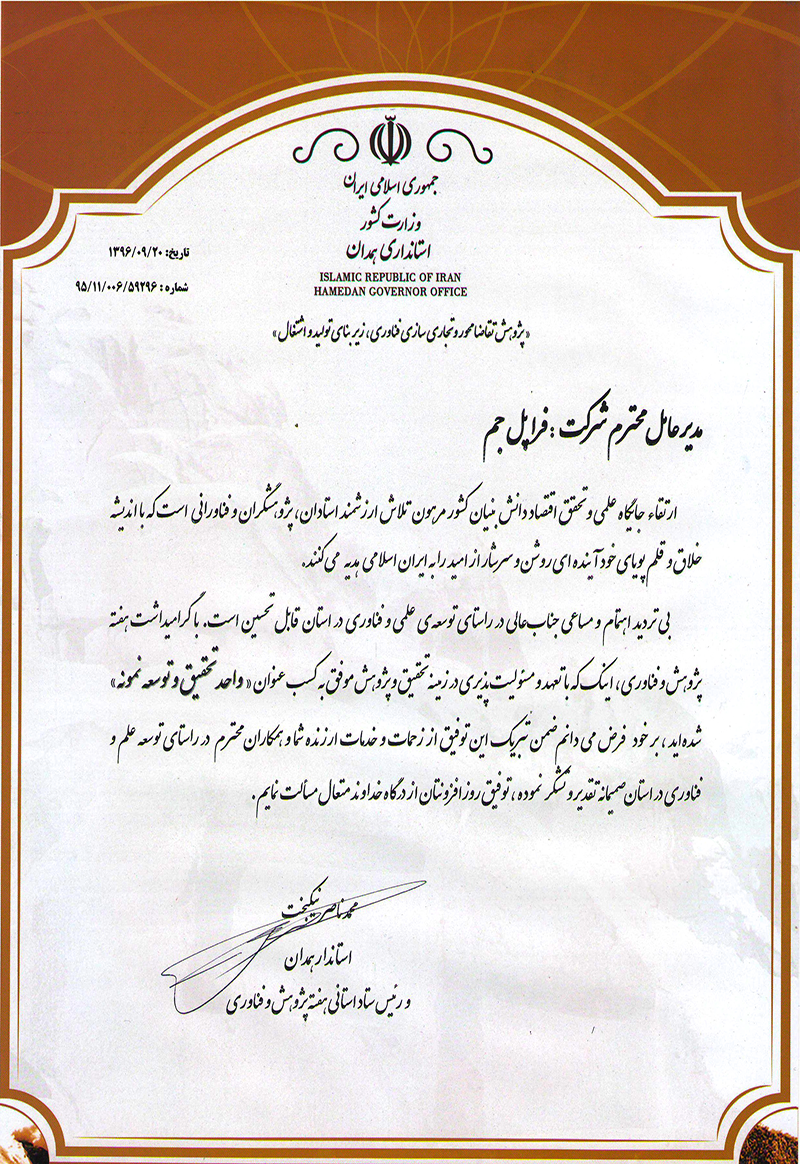 جمهوری اسلامی ایران
وزارت کشور
استانداری همدان
ISLAMIC REPUBLIC OF IRAN
HAMEDAN GOVERNOR OFFICE
تاریخ: ۱۳۹۶/۰۹/۲۰
شماره : ۹۵/۱۱/۰۰۶/۵۹۲۹۶
«پژوهش تقاضامحور و تجاری سازی فناوری، زیر بنای تولید و اشتغال»
مدیرعامل محترم شرکت : فراپل جم
ارتقاء جایگاه علمی و تحقق اقتصاد دانش بنیان کشور مرهون تلاش ارزشمند استادان، پژوهشگران و فناورانی است که با اندیشه
خلاق و قلم پویای خود آینده ای روشن و سرشار از امید را به ایران اسلامی هدیه می کنند.
بی تردید اهتمام و مساعی جناب عالی در راستای توسعه ی علمی و فناوری در استان قابل تحسین است. با گرامیداشت هفته
پژوهش و فناوری ، اینک که با تعهد و مسئولیت پذیری در زمینه تحقیق و پژوهش موفق به کسب عنوان « واحد تحقیق و توسعه نمونه »
شده اید ، بر خود فرض می دانم ضمن تبریک این توفیق از زحمات و خدمات ارزنده شما و همکاران محترم در راستای توسعه علم و
فناوری در استان صمیمانه تقدیر و تشکر نموده ، توفیق روز افزونتان از درگاه خداوند متعال مسألت نمایم .
محمدناصر نیکبخت
استاندار همدان
و رئیس ستاد استانی هفته پژوهش و فناوری